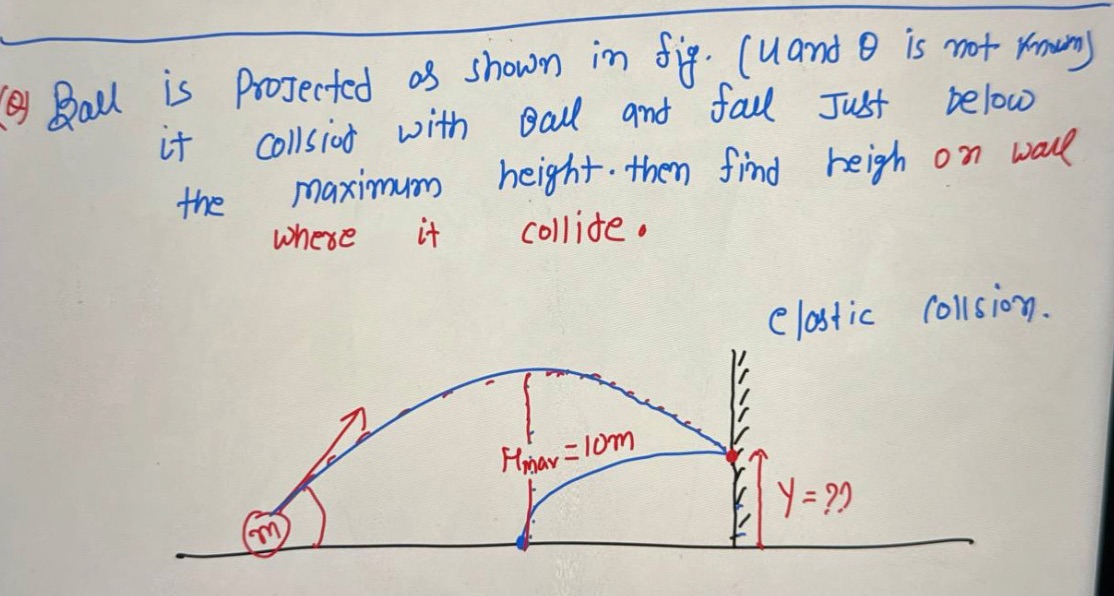 (Q) Ball is Projected as shown in fig. (u and θ is not known)
it collsiod with Ball and fall Just below
the maximum height. then find heigh on wall
where it collide.
elastic collsion.
Hmax = 10m
Y = ??
m